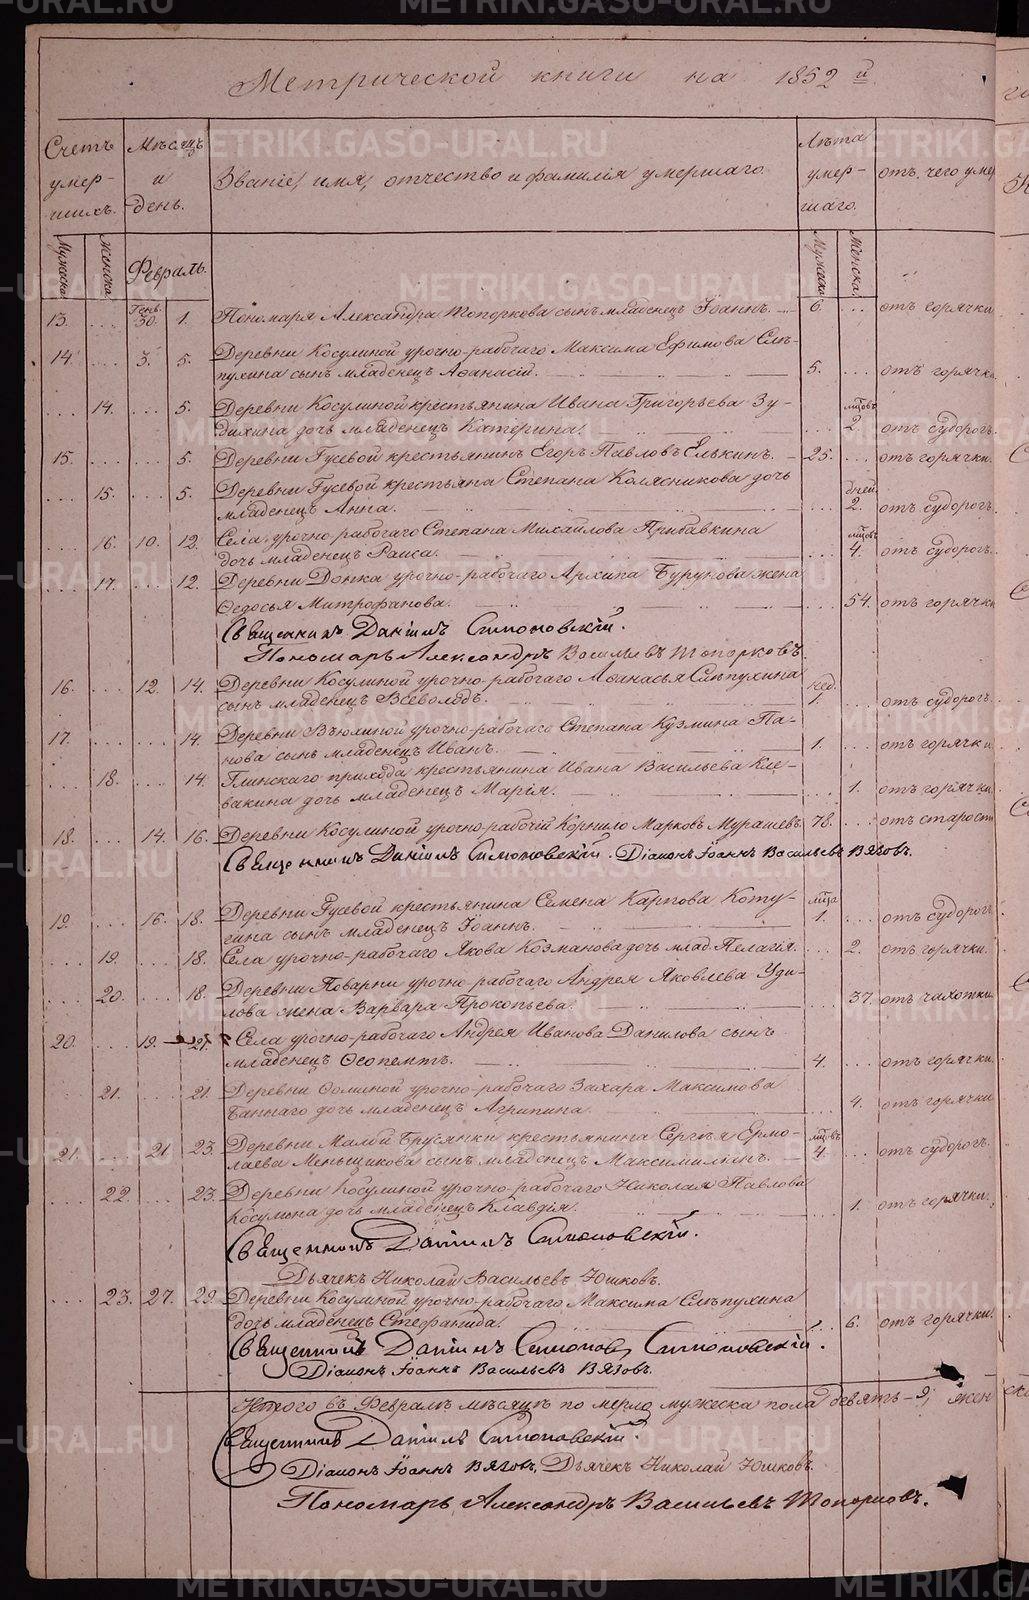 Метрической книги на 1852 й.
Счетъ умер- шихъ.
Мѣсяцъ и день.
Званіе, имя, отчество и фамилія умершаго.
Лѣта умер- шаго.
отъ чего умер
Мужеска.
Женска.
Февраль.
Мужеска
Женска.
13. ... Генв. 30. 1. Пономаря Александра Топоркова сынъ младенецъ Іоаннъ. 6. ... отъ горячки
14. ... 3. 5. Деревни Косулиной урочно-рабочаго Максима Ефимова Слѣ-
пухина сынъ младенецъ Аѳанасій. 5. ... отъ горячк
... 14. ... 5. Деревни Косулиной крестьянина Ивана Григорьева Зу-
дихина дочь младенецъ Катерина. мцовъ 2. отъ судорогъ.
15. ... ... 5. Деревни Гусевой крестьянинъ Егоръ Павловъ Елькинъ. 25. ... отъ горячки.
... 15. ... 5. Деревни Гусевой крестьяна Степана Колясникова дочь
младенецъ Анна. дней 2. отъ судорогъ.
... 16. 10. 12. Села урочно рабочаго Степана Михайлова Прибавкина
дочь младенецъ Раиса. мцовъ 4. отъ судорогъ.
... 17. ... 12. Деревни Донка урочно-рабочаго Архипа Бурунова жена
Ѳедосья Митрофанова. ... 54. отъ горячки
Священникъ Даніилъ Симоновскій.
Пономарь Александръ Васильевъ Топорковъ.
16. ... 12. 14. Деревни Косулиной урочно-рабочаго Аѳанасья Слѣпухина
сынъ младенецъ Всеволодъ. нед. 1. ... отъ судорогъ.
17. ... ... 14. Деревни Вьюхиной урочно-рабочаго Степана Кузмина Па-
нова сынъ младенецъ Иванъ. 1. ... отъ горячки
... 18. ... 14. Глинскаго прихода крестьянина Ивана Васильева Кле-
вакина дочь младенецъ Марія. ... 1. отъ горячки
18. ... 14. 16. Деревни Косулиной урочно-рабочій Корнило Марковъ Мурашевъ. 78. ... отъ старост
Священникъ Даніилъ Симоновскій. Діаконъ Іоаннъ Васильевъ Вязовъ.
19. ... 16. 18. Деревни Гусевой крестьянина Семена Карпова Коту-
гина сынъ младенецъ Іоаннъ. мца 1. ... отъ судорогъ
... 19. ... 18. Села урочно-рабочаго Якова Козманова дочь млад. Пелагія. ... 2. отъ горячки.
... 20. ... 18. Деревни Поварни урочно-рабочаго Андрея Яковлева Уди-
лова жена Варвара Прокопьева. ... 37. отъ чахотки
20. ... 19. 21. Села урочно-рабочаго Андрея Иванова Данилова сынъ
младенецъ Ѳеопемптъ. 4. ... отъ горячки
... 21. ... 21. Деревни Ѳоминой урочно-рабочаго Захара Максимова
Баннаго дочь младенецъ Агрипина. ... 4. отъ горячки
21. ... 21 23. Деревни Малой Брусянки крестьянина Сергѣя Ермо-
лаева Меньщикова сынъ, младенецъ Максимиліанъ. мцовъ 4. ... отъ судорогъ.
... 22. ... 23. Деревни Косулиной урочно-рабочаго Николая Павлова
Косулина дочь младенецъ Клавдія. ... 1. отъ горячки.
Священникъ Даніилъ Симоновскій.
Дьячекъ Николай Васильевъ Юшковъ.
... 23. 27. 29. Деревни Косулиной урочно-рабочаго Максима Слѣпухина
дочь младенецъ Стефанида. ... 6. отъ горячки.
Священникъ Даніилъ Симонов Симоновскій.
Діаконъ Іоаннъ Васильевъ Вязовъ.
Итого въ Февралѣ мѣсяцѣ по мерло мужеска пола девять - 9, жен
Священникъ Даніилъ Симоновскій.
Діаконъ Іоаннъ Вязовъ, Дьячекъ Николай Юшковъ.
Пономарь Александръ Васильевъ Топорковъ.
METRIKI.GASO-URAL.RU